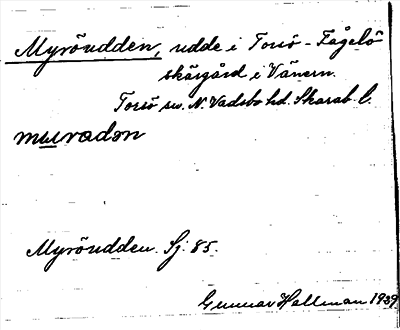 Myröudden, udde i Torsö-Fågelö
skärgård i Vänern.
Torsö sn. N. Vadsbo hd. Skarab. l.
muradən
Myröudden. Sj. 85.
Gunnar Hallman 1939